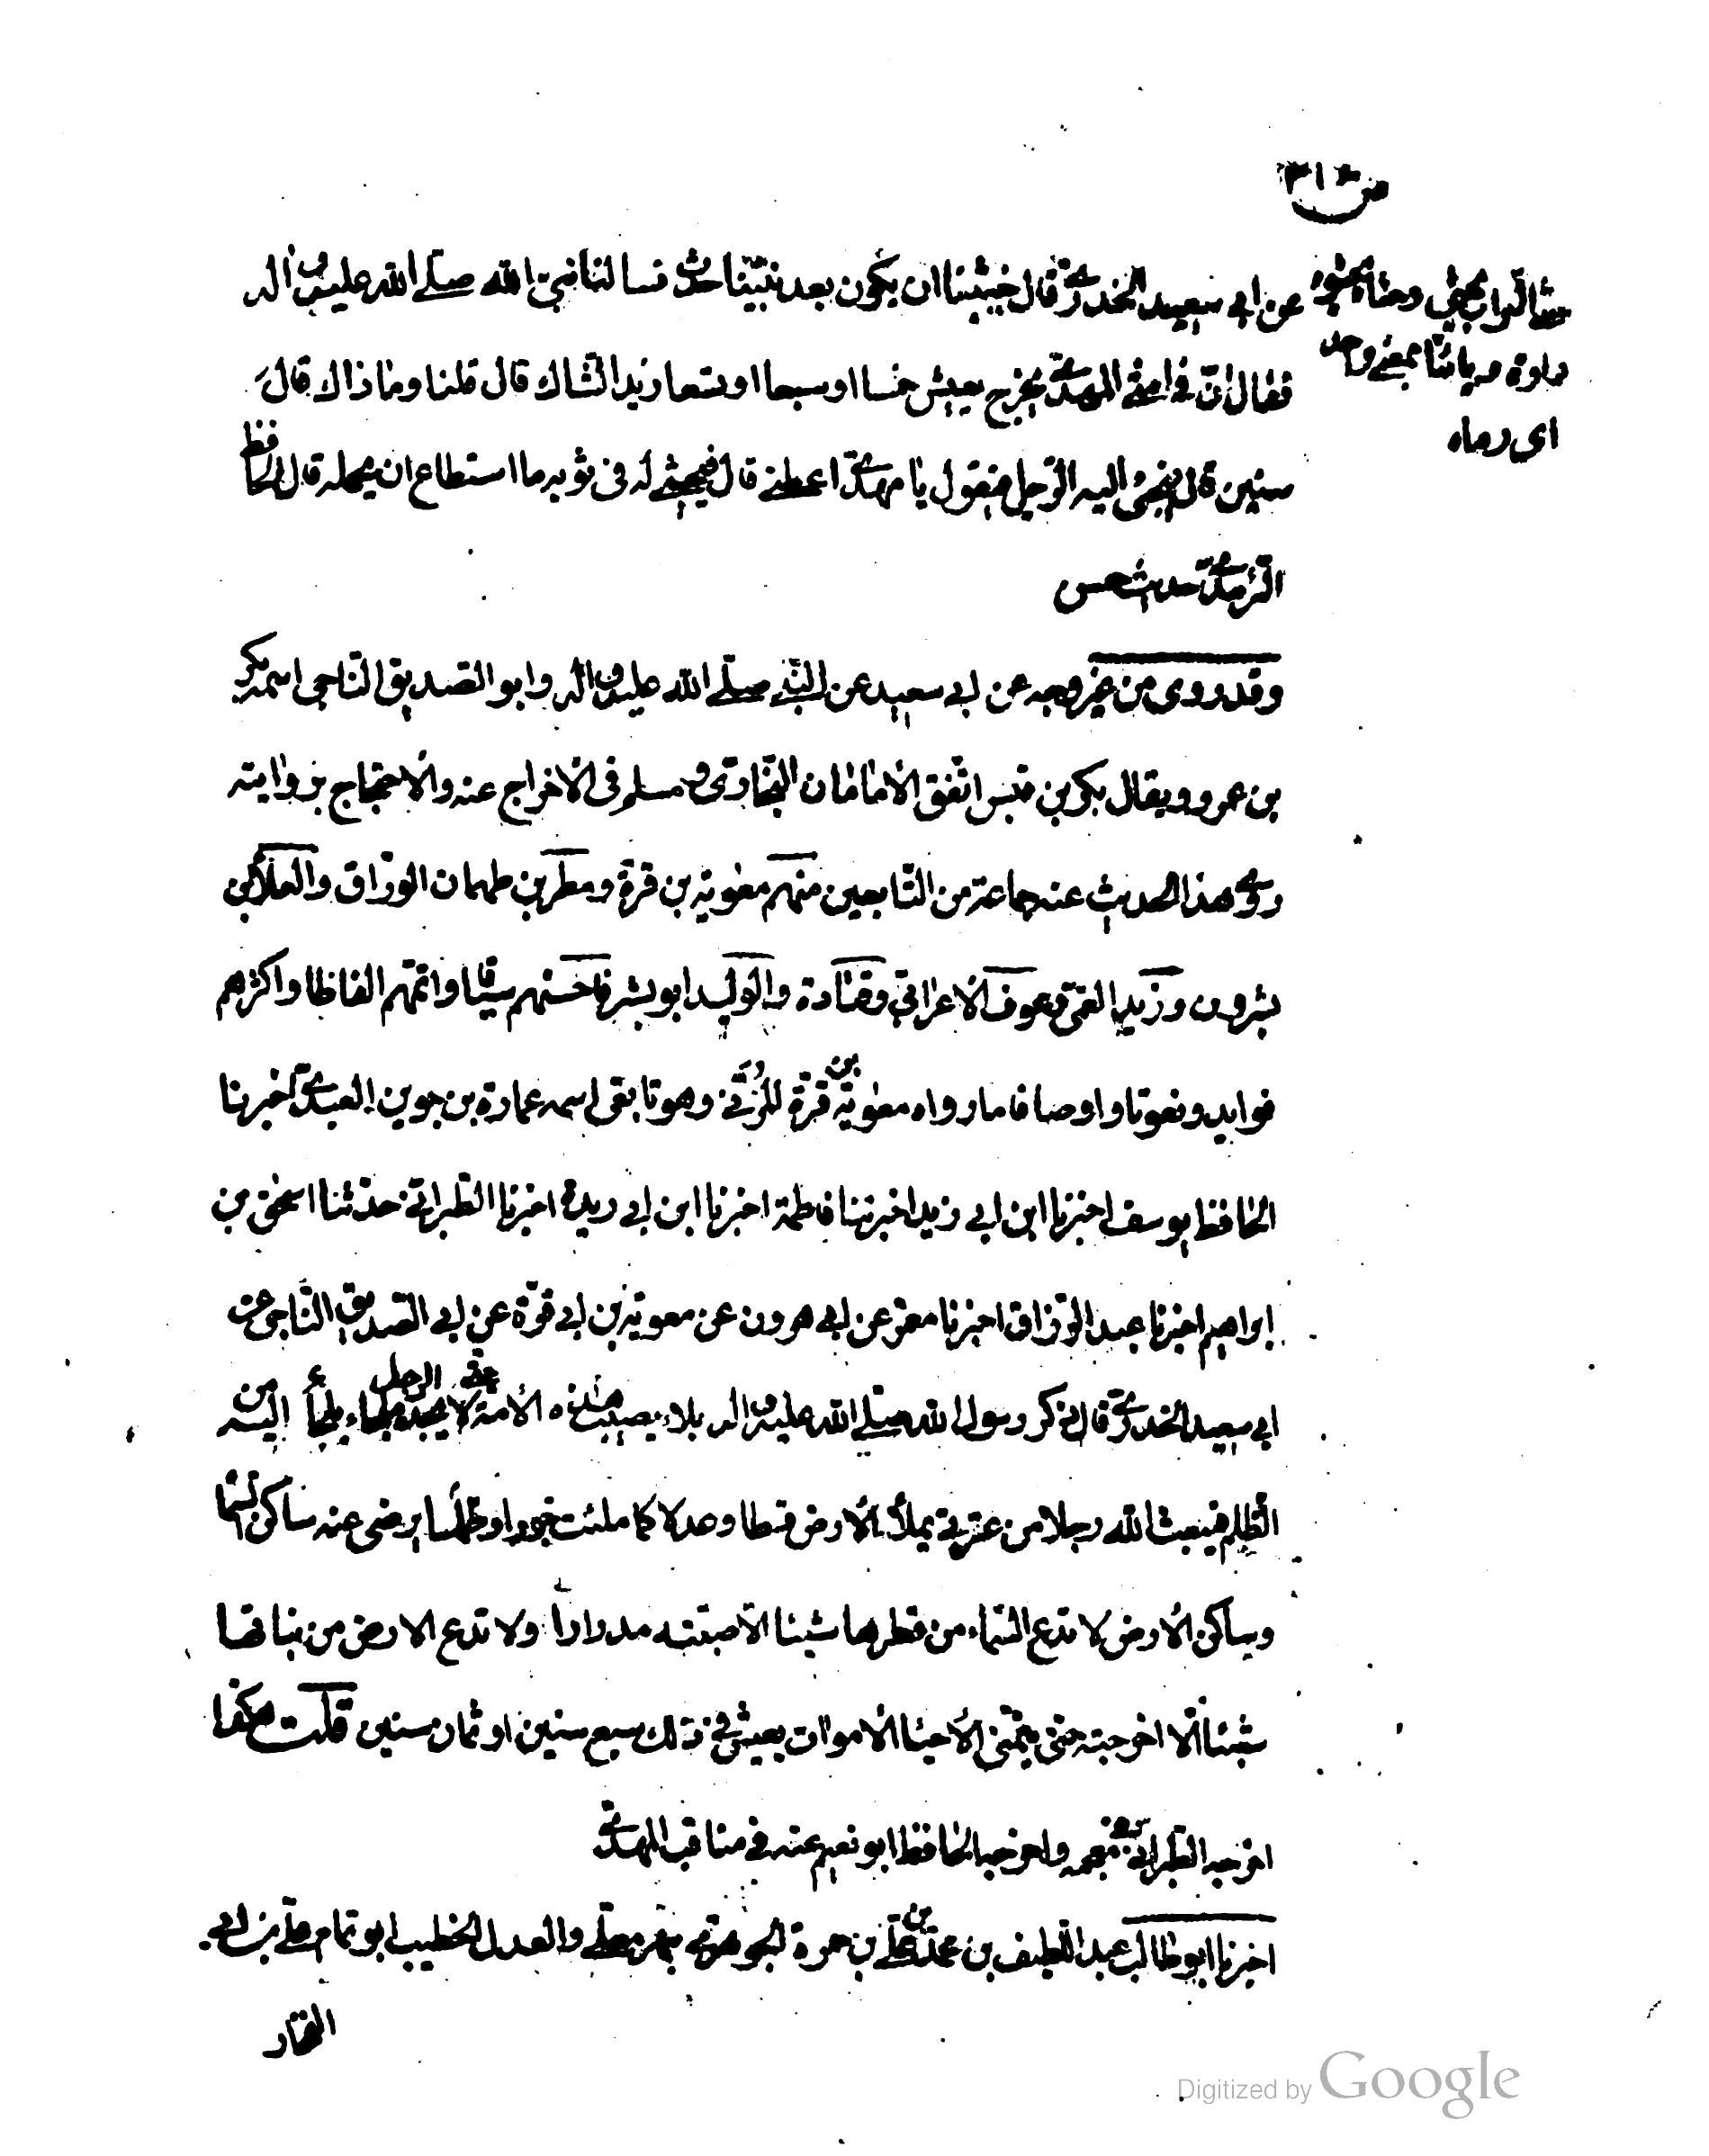 ص ٣١٤
عن ابي سعيد الخدرى قال خشينا ان يكون بعد نبينا حدث فسالنا نبي الله صلى الله عليه و اله
فقال ان فى امتى المهدى يخرج يعيش خمسا او سبعا او تسعا زيد الشاك قال قلنا وما ذاك قال
سنين قال فيجئ اليه الرجل فيقول يا مهدى اعطنى قال فيحثى له فى ثوبه ما استطاع ان يحمله قال الحافظ
الترمذى حديث حسن
وقد روى من غير وجه عن ابى سعيد عن النبى صلى الله عليه و اله وابو الصديق الناجى اسمه بكر
بن عمرو ويقال بكر بن قيس اتفق الامامان البخارى و مسلم فى الاخراج عنه والاحتجاج بروايته
روى هذا الحديث عنه جماعة من التابعين منهم معوية بن قرة ومطر بن طهمان الوراق والعلاء بن
بشر ون وزيد العمى وعوف الاعرابى وقتادة والوليد ابو بشر فاحسنهم سياقا واتمهم الفاظا واكثرهم
فوايد ونعوتا واوصافا ما رواه معوية بن قرة المزنى وهو تابعى اسمه عمارة بن جوين العبدى اخبرنا
الحافظ يوسف اخبرنا ابن ابى زيد اخبرتنا فاطمة اخبرنا ابن ابى ريدة اخبرنا الطبرانى حدثنا اسحق بن
ابراهيم اخبرنا عبد الرزاق اخبرنا معمر عن ابى هرون عن معوية بن ابى قرة عن ابى الصديق الناجى عن
ابى سعيد الخدرى قال ذكر رسول الله صلى الله عليه و اله بلاء يصيب هذه الامة حتى لا يجد الرجل ملجاء يلجأ اليه من
الظلم فيبعث الله رجلا من عترتى يملأ الارض قسطا وعدلا كما ملئت جورا وظلما يرضى عنه ساكن السما
وساكن الارض لا تدع السماء من قطرها شيئا الا صبته مدرارا ولا تدع الارض من نباتها
شيئا الا اخرجته حتى يتمنى الاحيا الاموات يعيش فى ذلك سبع سنين او ثمان سنين قلت هكذا
اخرجه الطبرانى فى معجمه واخرجه الحافظ ابو نعيم عنه فى مناقب المهدى
اخبرنا ابو طالب عبد اللطيف بن محمد بن على بن حمزة الجوهرى بنهر معلى والعدل الخطيب ابو تمام على بن ابى
الفخار
حثا التراب يحثى وحثاه يحثوه
بمعنى واحد
اى رماه
Digitized by Google